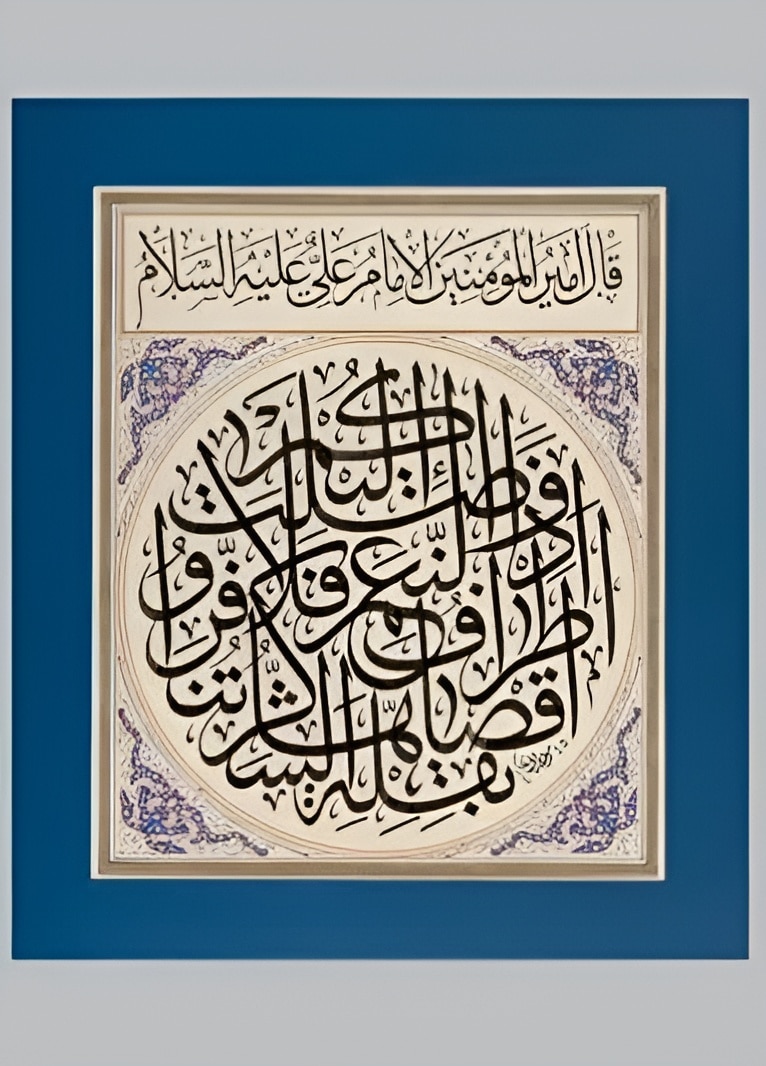 قال أمير المؤمنين الامام علي عليه السلام
اذا وصلت إليكم اطراف النعم فلا تنفروا اقصاها بقلة الشكر